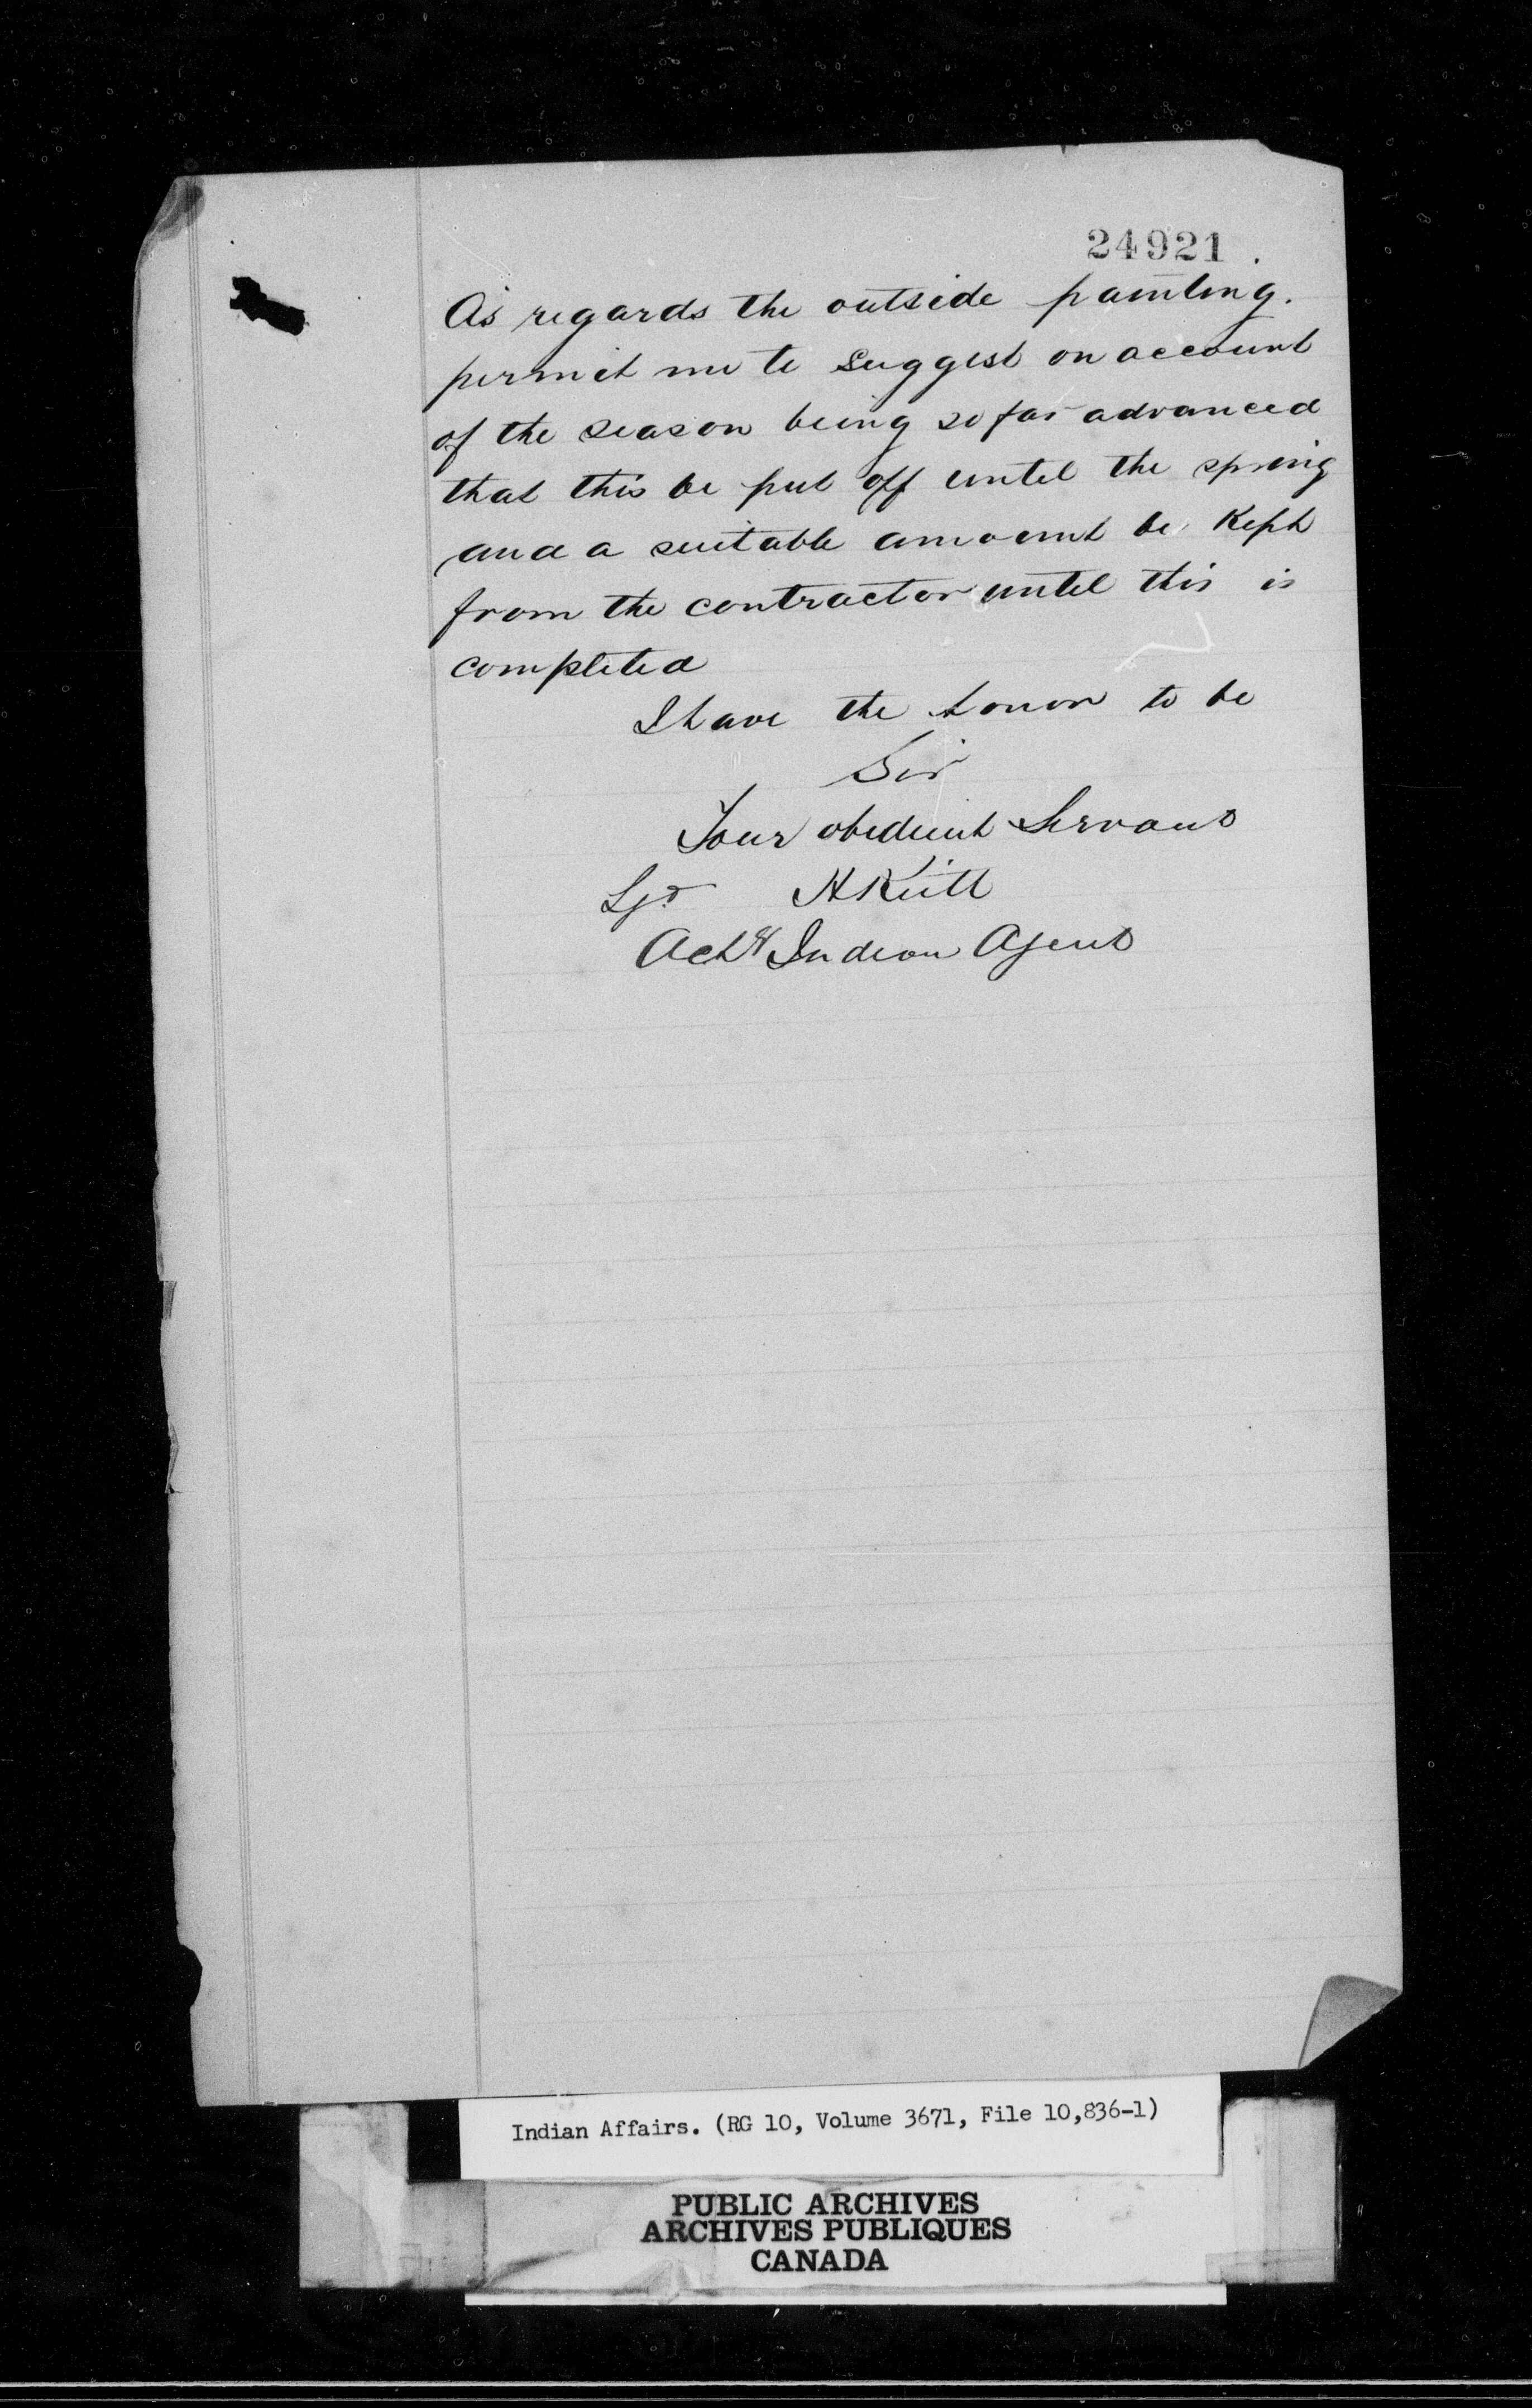 24921.
As regards the outside painting.
permit me to suggest on account
of the season being so far advanced
that this be put off until the spring
and a suitable amount be Kept
from the contractor until this is
completed
I have the honor to be
Sir
Your obedient Servant
Sgd H Keith
Actg Indian Agent
Indian Affairs. (RG 10, Volume 3671, File 10,836-1)
PUBLIC ARCHIVES
ARCHIVES PUBLIQUES
CANADA